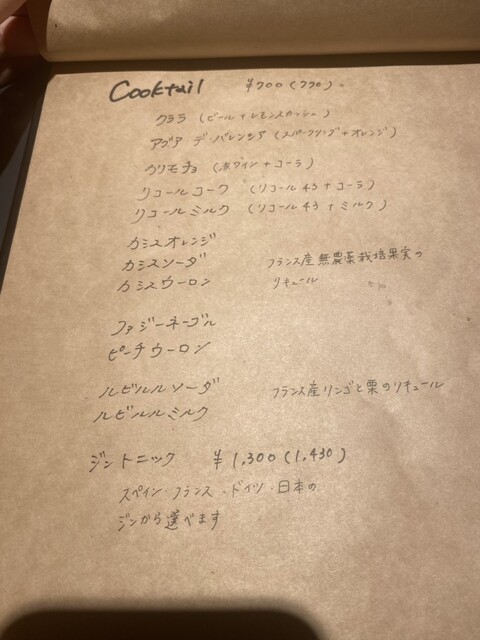 Cooktail ¥700(770)。
クララ (ビール+レモンスカッシュ)
アグア デ バレンシア (スパークリング+オレンジ)
カリモチョ (赤ワイン+コーラ)
リコールコーク (リコール43+コーラ)
リコールミルク (リコール43+ミルク)
カシスオレンジ
カシスソーダ フランス産無農薬栽培果実の
カシスウーロン リキュール
ファジーネーブル
ピーチウーロン
ルビルルソーダ フランス産リンゴと栗のリキュール
ルビルルミルク
ジントニック ¥1,300(1,430)
スペイン・フランス・ドイツ・日本の
ジンから選べます